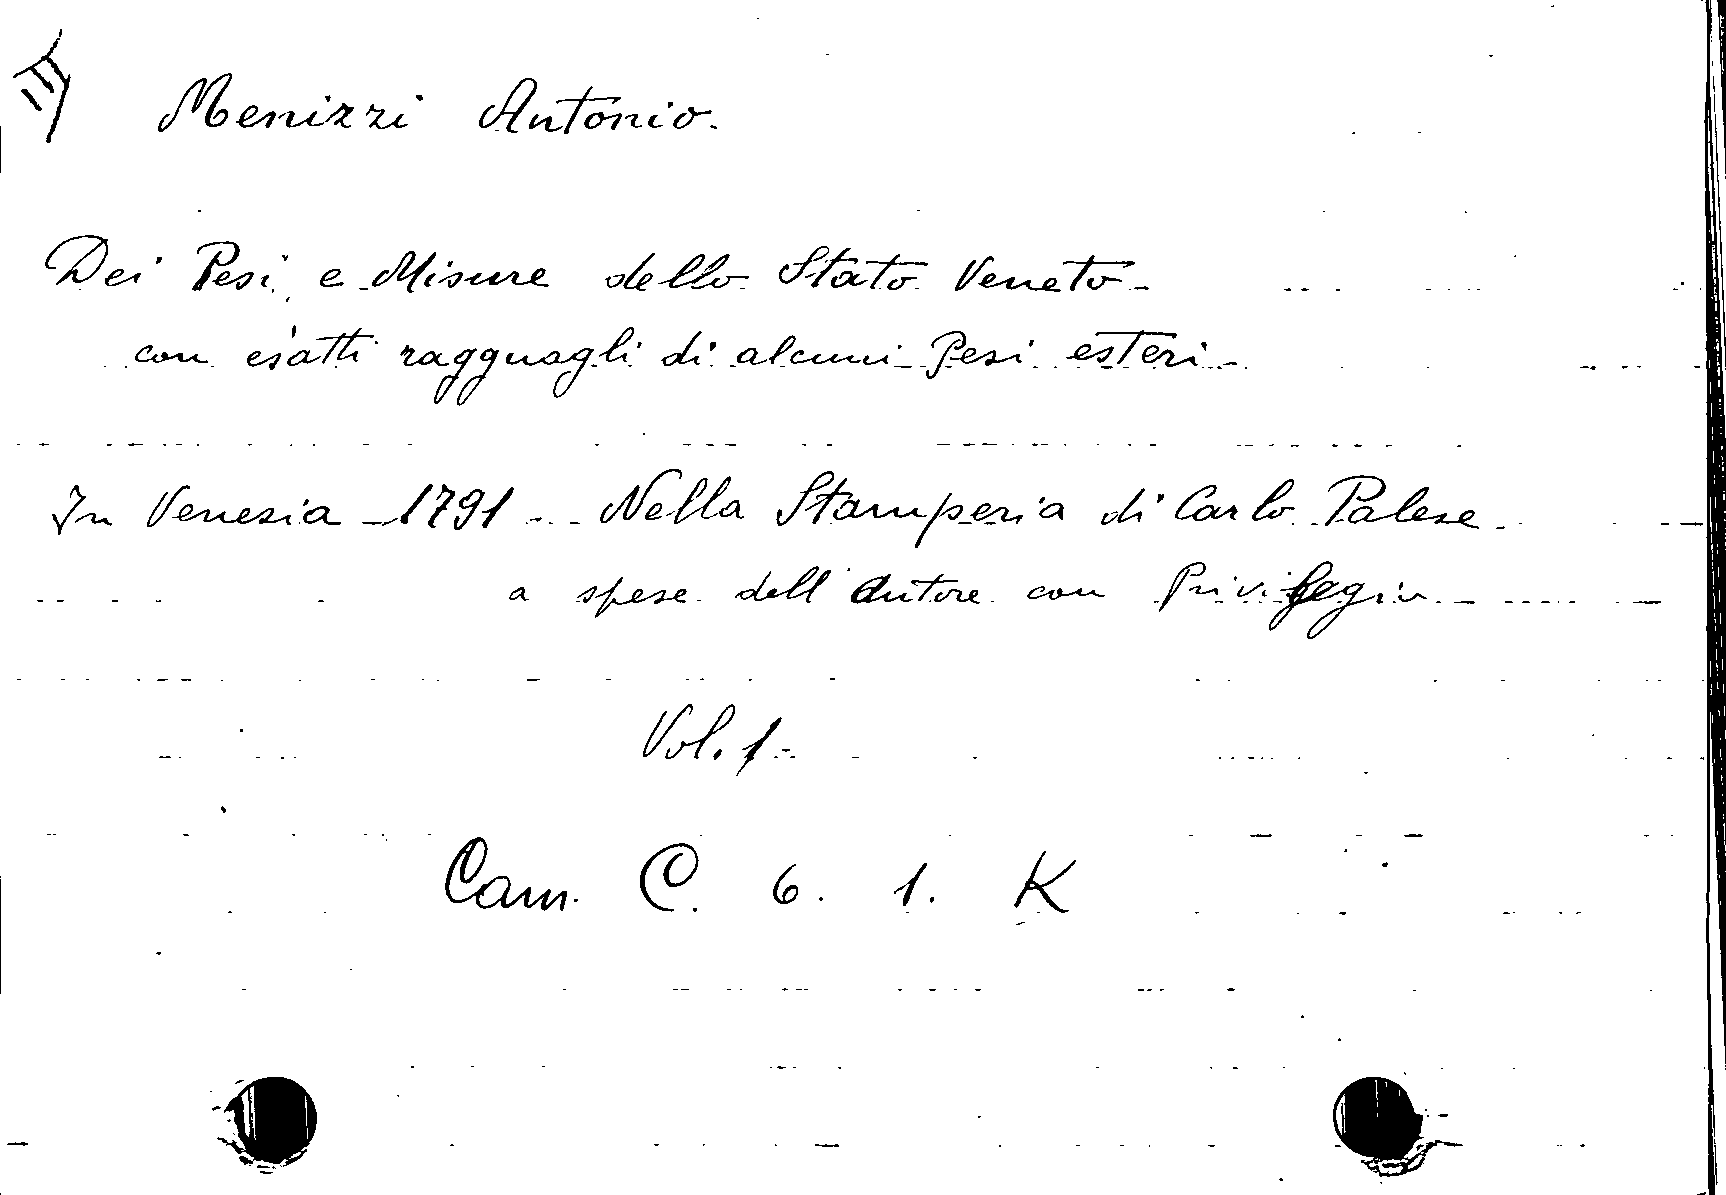 Menizzi Antonio.
Dei Pesi e Misure dello Stato Veneto
con esatti ragguagli di alcuni Pesi esteri
In Venezia 1791 Nella Stamperia di Carlo Palese
a spese dell'Autore con Privilegio
Vol. 1
Cam. C. 6. 1. K